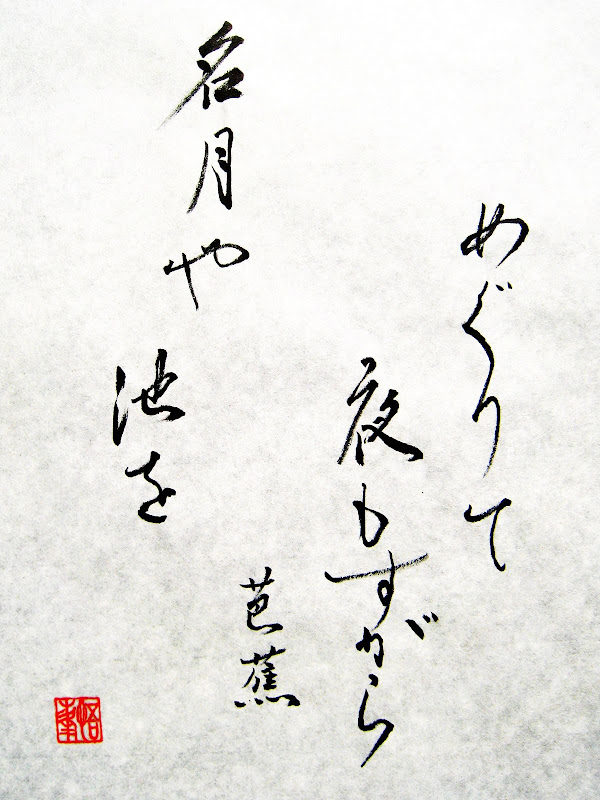 名月や池を
めぐりて
夜もすがら
芭蕉